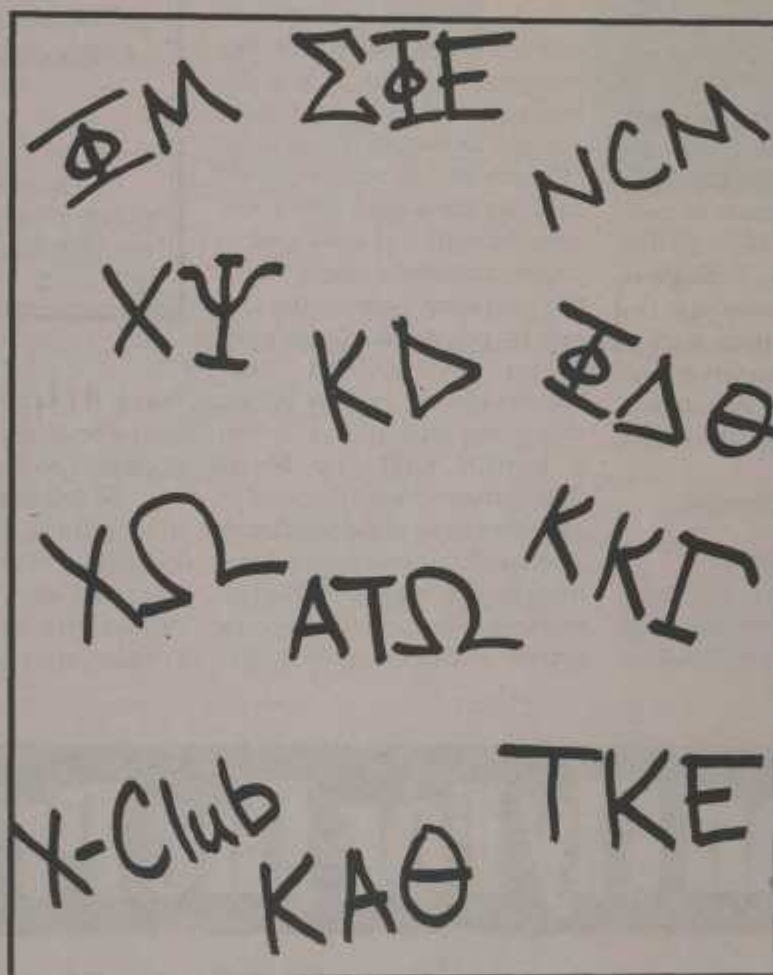 ΦΜ
ΣΦΕ
NCM
ΧΨ
ΚΔ
ΦΔΘ
ΧΩ
ΑΤΩ
ΚΚΓ
X-Club
ΚΑΘ
ΤΚΕ